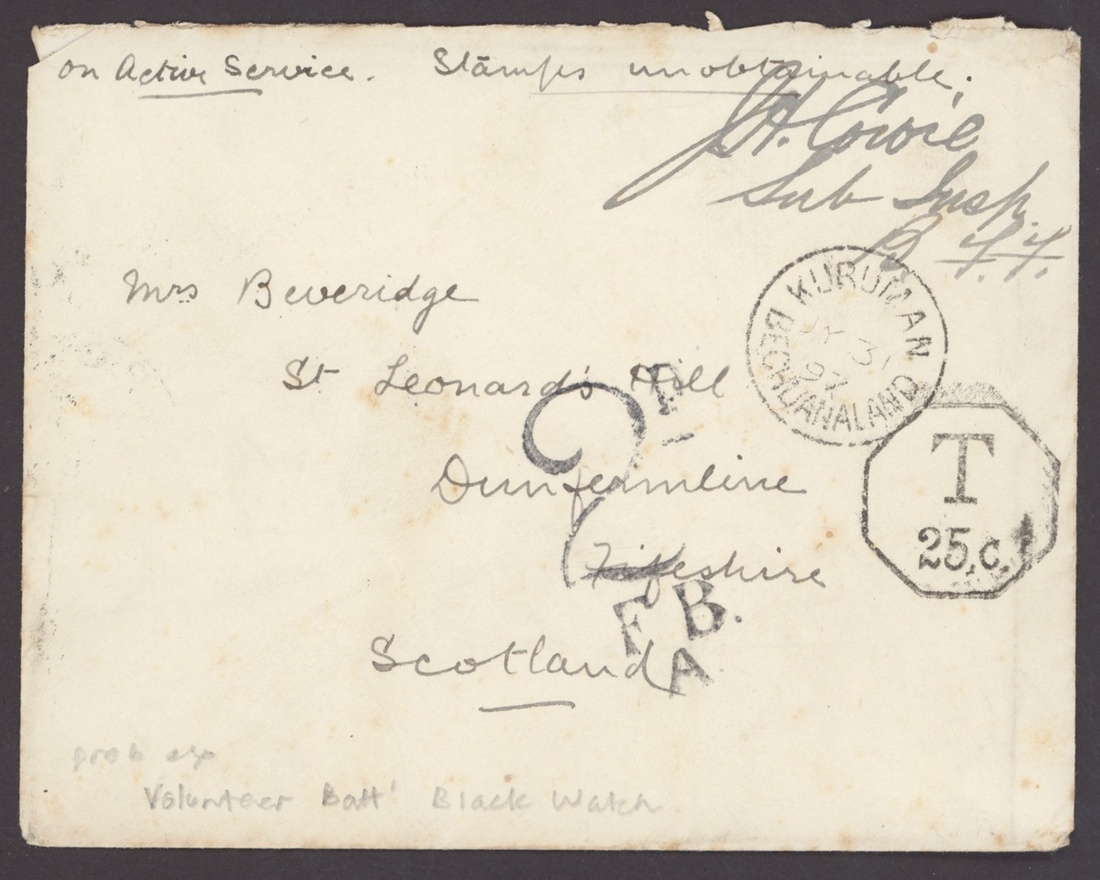 on Active Service. Stamps unobtainable.
J.H. Cowie
Sub Insp.
B.Y.Y.
Mrs Beveridge
St Leonard's Hill
Dunfermline
Fifeshire
Scotland
KURUMAN
31
97
BECHUANALAND
T
25.c.
2D
F.B.
A
prob ex
Volunteer Batt' Black Watch